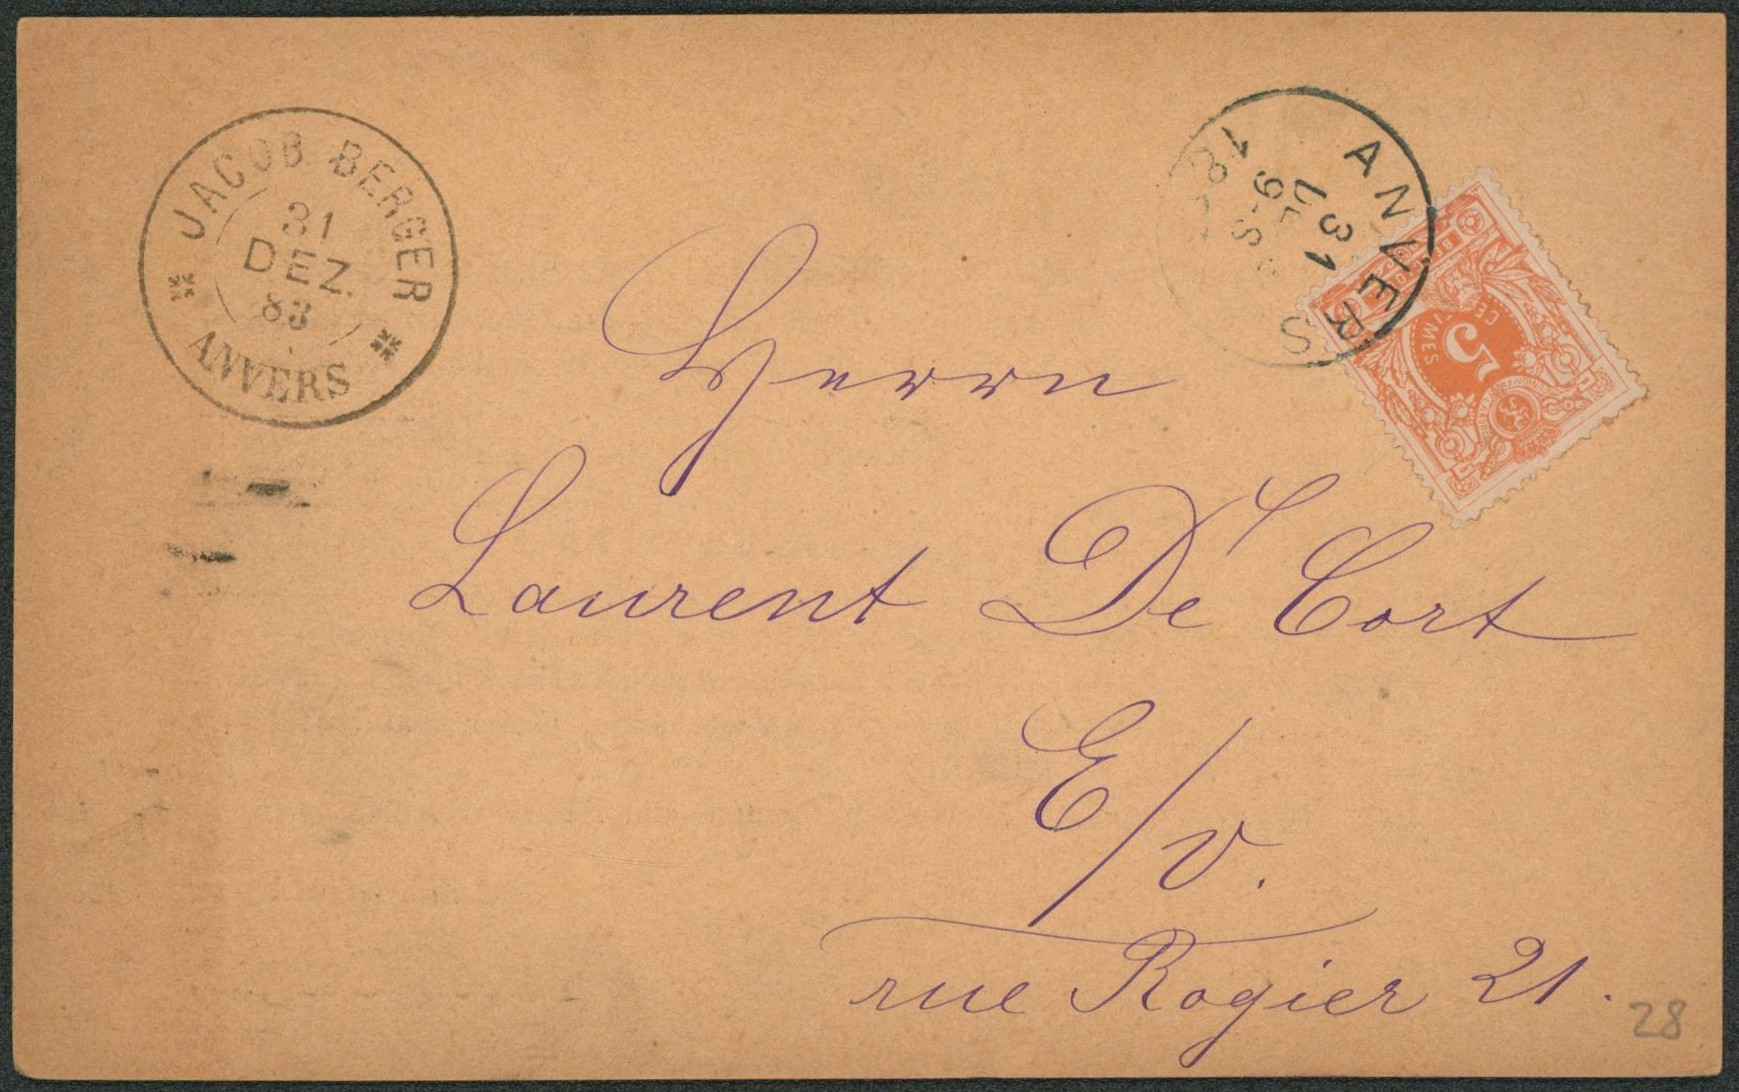 JACOB BERGER
31
DEZ.
83
ANVERS
ANVERS
31
9-S
5
CENTIMES
Herrn
Laurent De Cort
E/v.
rue Rogier 21.
28